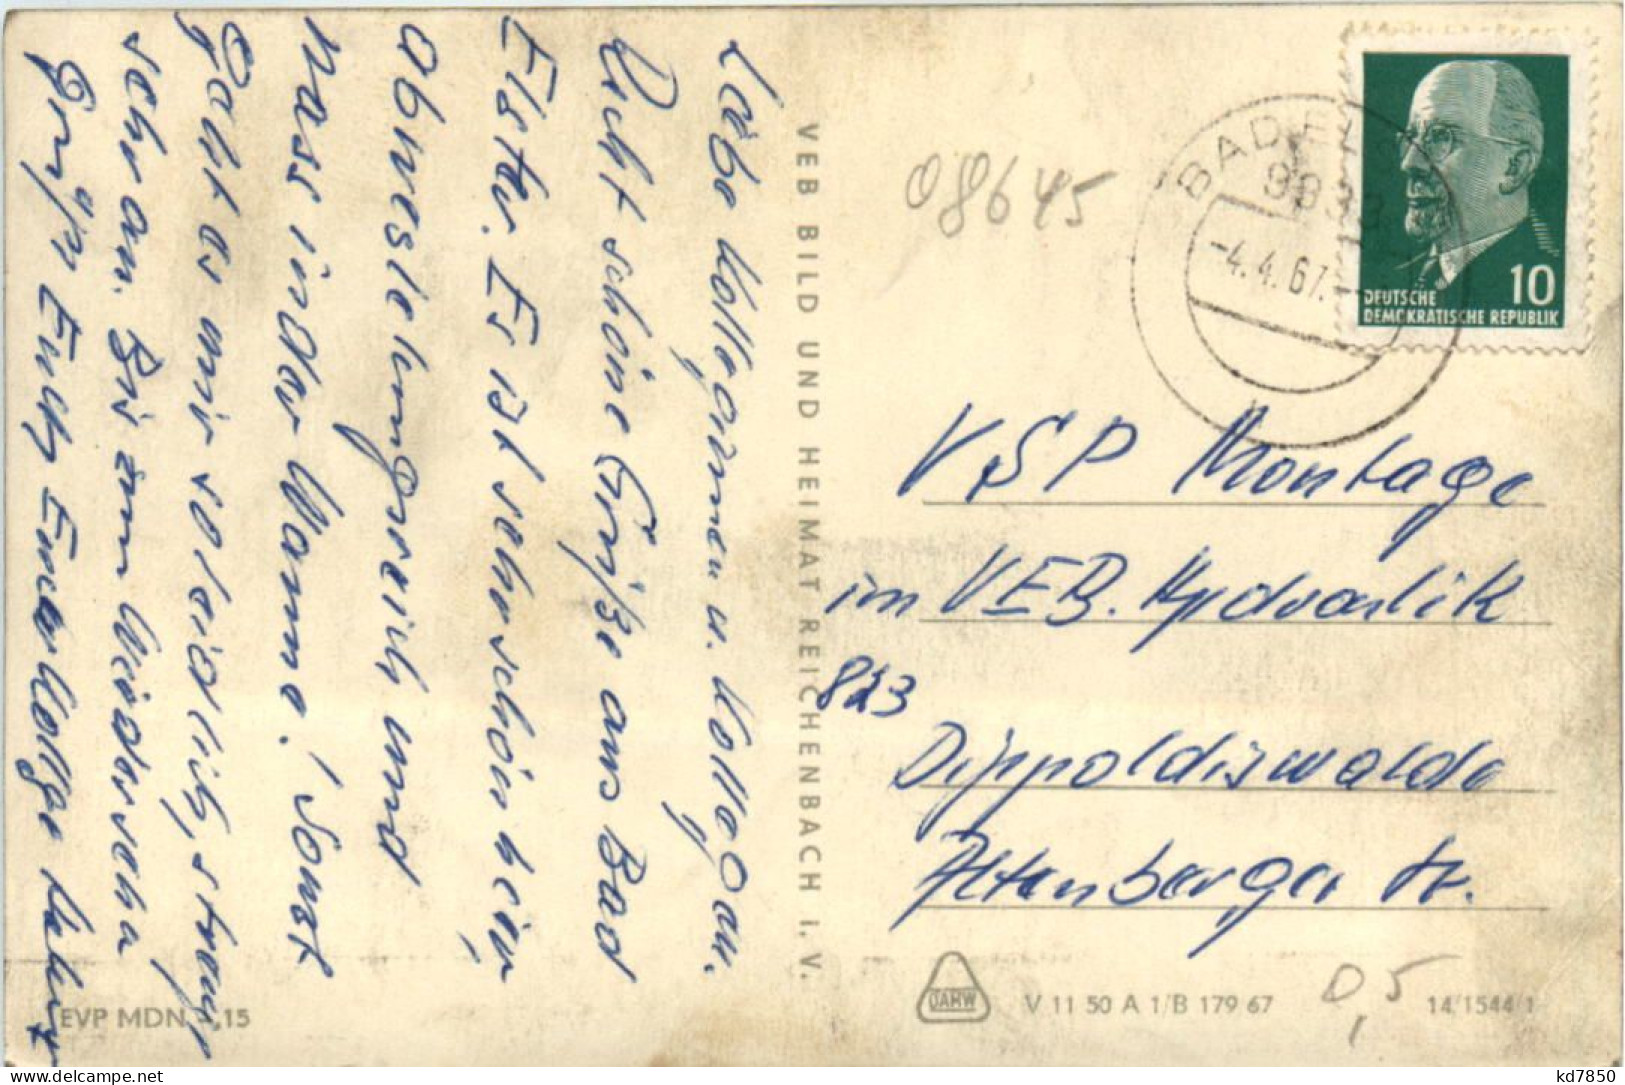 Liebe Kolleginnen u. Kollegen.
Recht schöne Grüße aus Bad
Elster. Es ist sehr schön hier,
abwechslungsreich und
was in der Wanne! Sonst
geht es mir so leidlich, strengt
sehr an. Bis zum Wiedersehn
Grüßt Euch Eure Kollege
VEB BILD UND HEIMAT REICHENBACH I. V.
EVP MDN 0,15
08645
BAD ELSTER
9933
-4.4.67.-
10
DEUTSCHE
DEMOKRATISCHE REPUBLIK
VSP Montage
im VEB. Hydraulik
823
Dippoldiswalde
Altenberger Str.
V 11 50 A 1/B 179 67
0,5
14/1544/1
kd7850